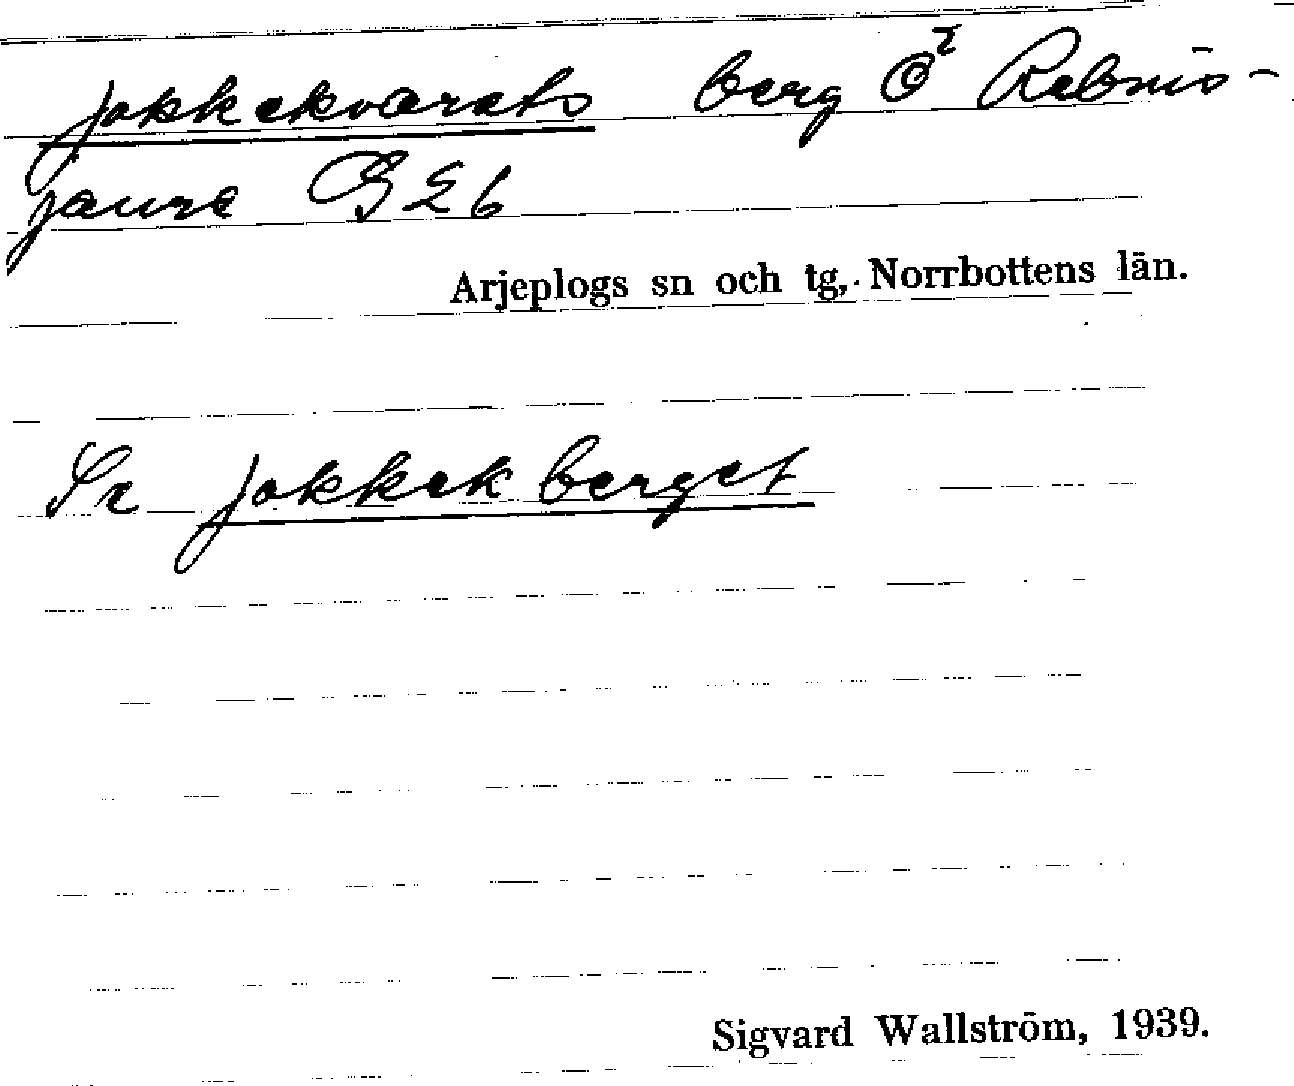 Jokkekvarats berg Ö Rebnis-
jaure B 2 b
Arjeplogs sn och tg, Norrbottens län.
Se Jokkekberget
Sigvard Wallström, 1939.